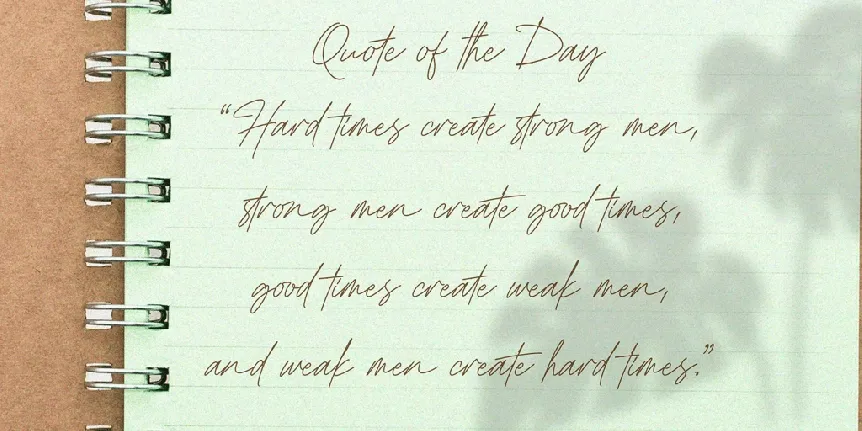 Quote of the Day
“Hard times create strong men,
strong men create good times,
good times create weak men,
and weak men create hard times.”